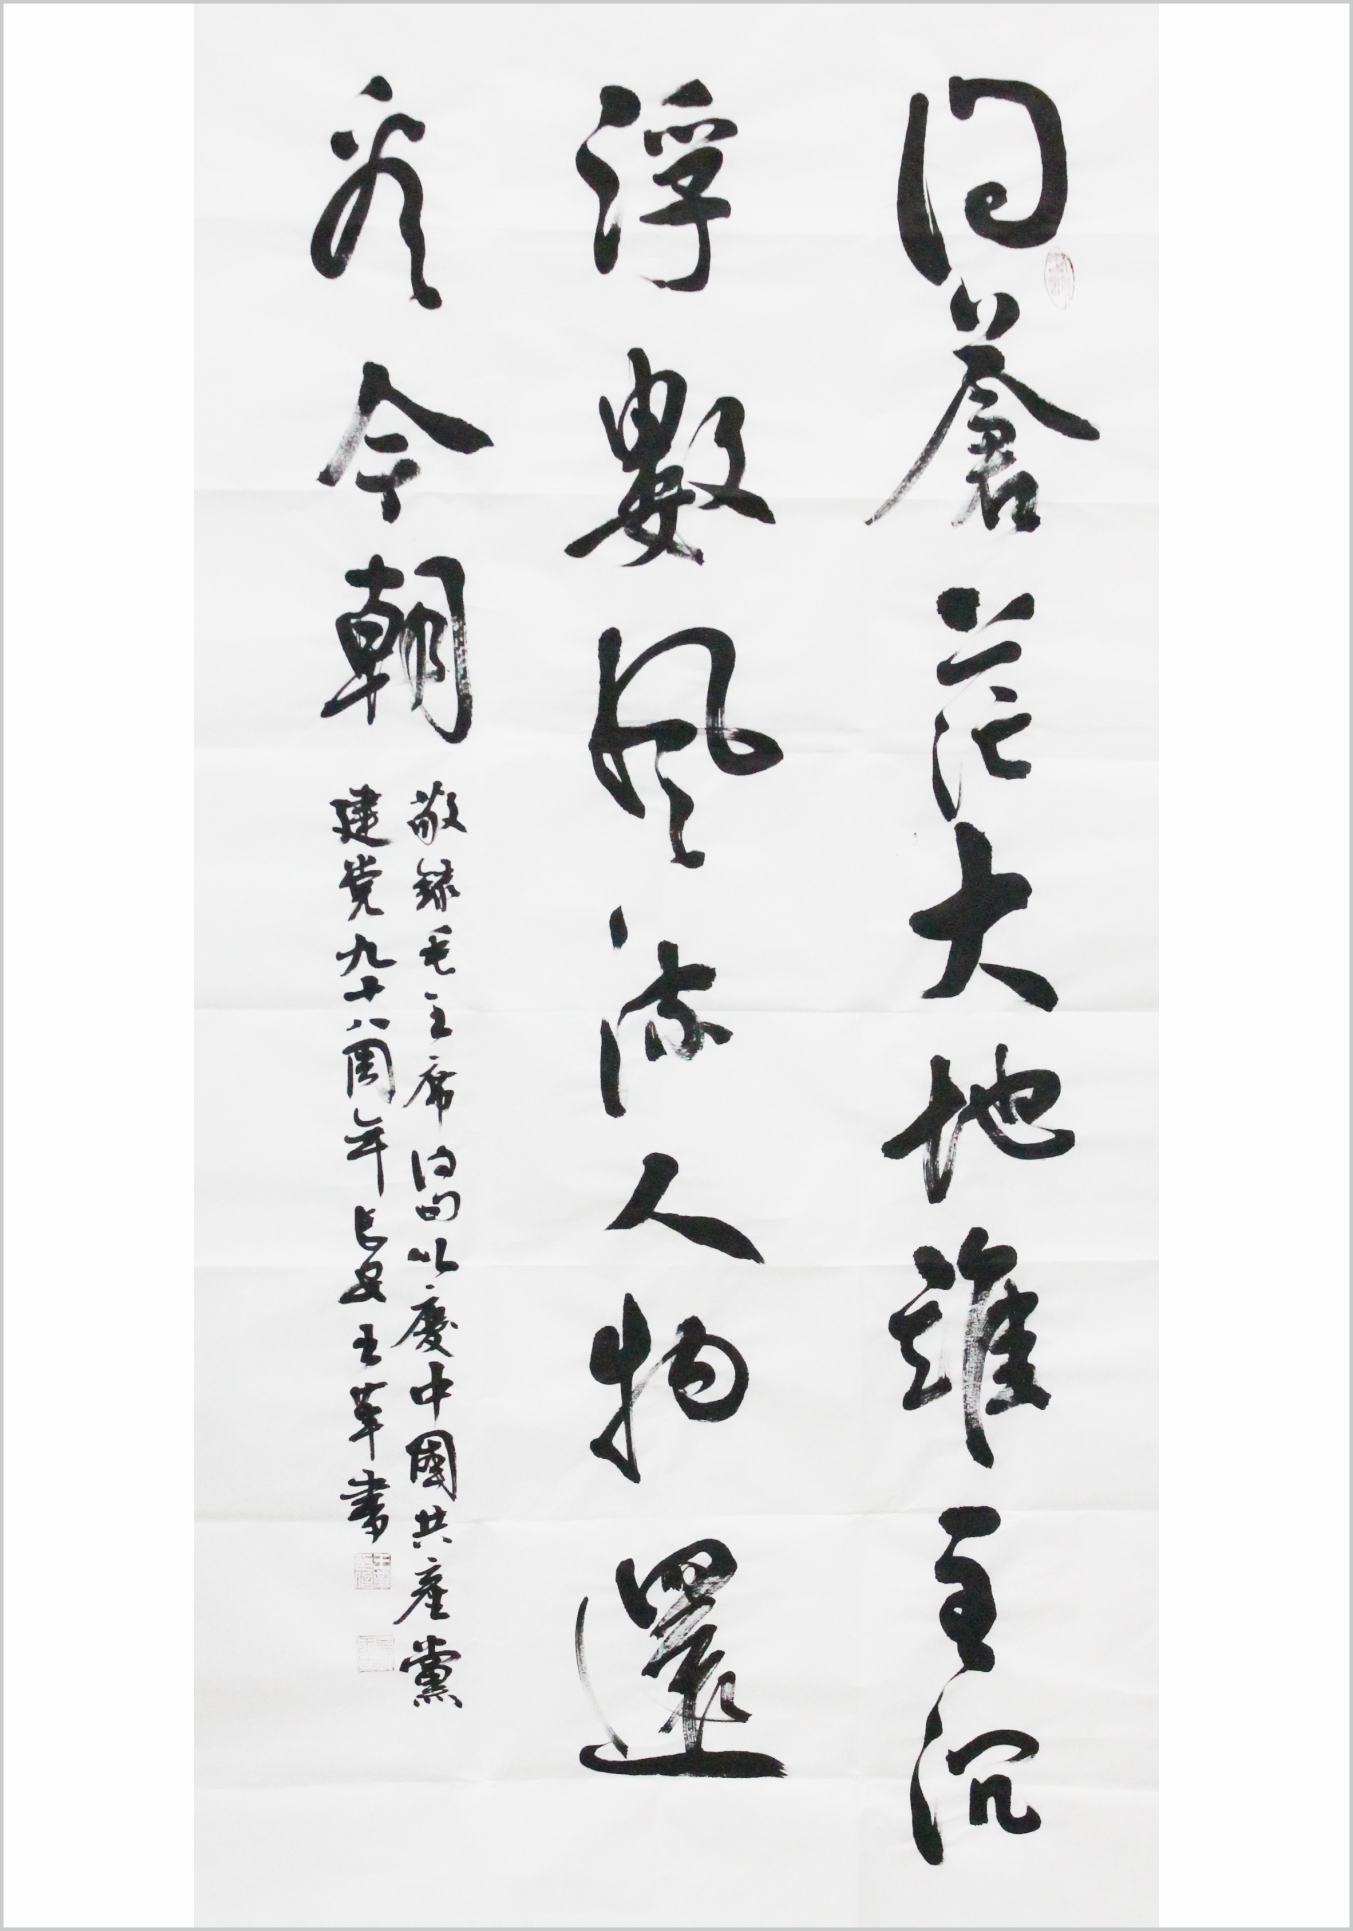 问蒼茫大地誰主沉
浮數風流人物還
看今朝
敬錄毛主席诗句以慶中國共産黨
建党九十八周年长安王華书